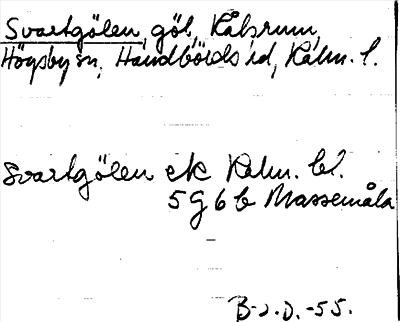 Svartgölen, göl, Kåbsrum,
Högsby sn, Handbörds hd, Kalm. l.
Svartgölen ek Kalm. bl.
5G 6b Massemåla
B-J.D.-55.